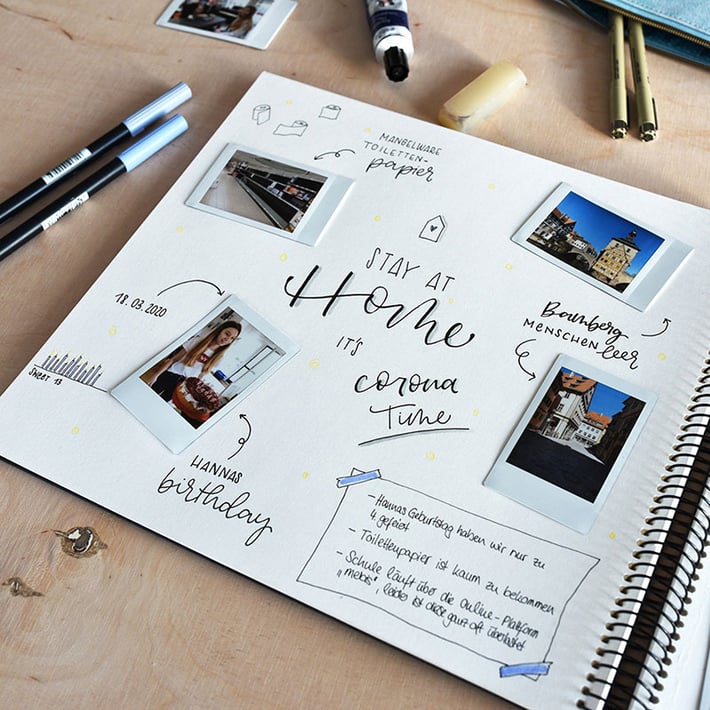 MANGELWARE
TOILETTEN-
papier
STAY AT
Home
IT'S
corona
TIME
18.03.2020
SWEET 13
HANNAS
birthday
Bamberg
MENSCHENleer
- Hannas Geburtstag haben wir nur zu
4. gefeiert
- Toilettenpapier ist kaum zu bekommen
- Schule läuft über die Online-Plattform
„mebis", leider ist diese ganz oft überlastet